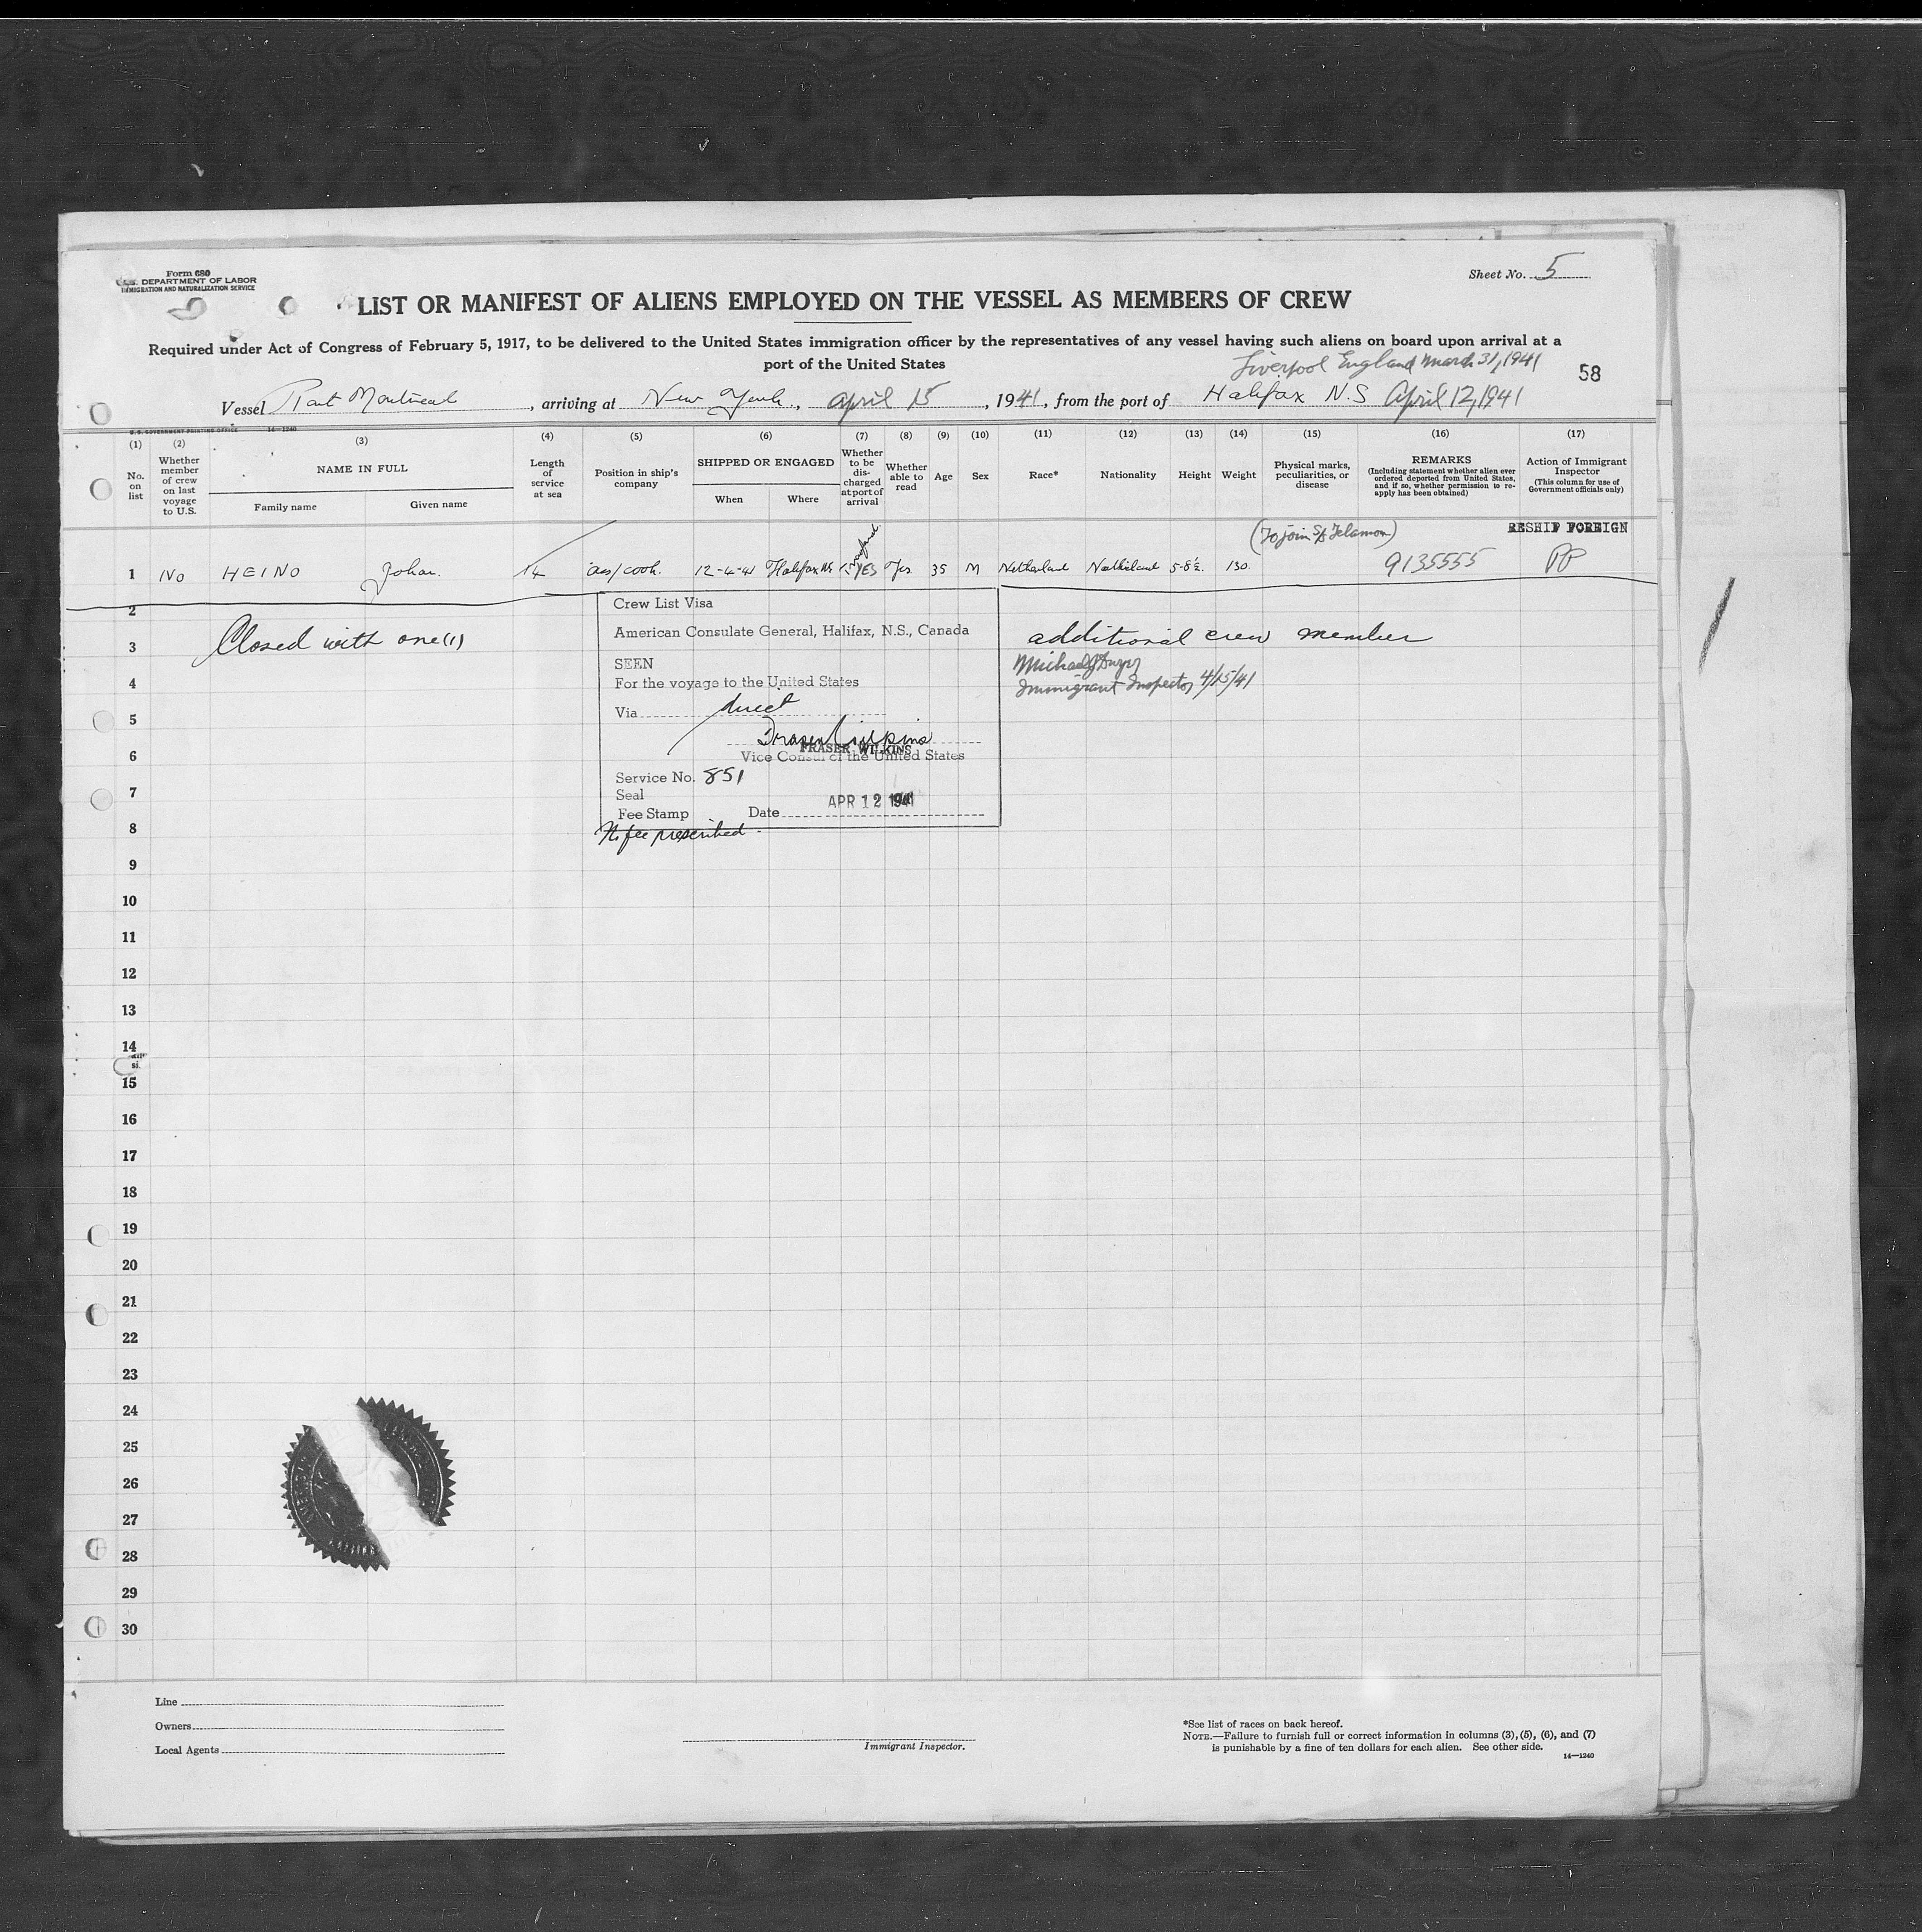 Form 680
U.S. DEPARTMENT OF LABOR
IMMIGRATION AND NATURALIZATION SERVICE
Sheet No. 5
LIST OR MANIFEST OF ALIENS EMPLOYED ON THE VESSEL AS MEMBERS OF CREW
Required under Act of Congress of February 5, 1917, to be delivered to the United States immigration officer by the representatives of any vessel having such aliens on board upon arrival at a
port of the United States
Liverpool England March 31, 1941
58
Vessel Port Montreal, arriving at New York, April 15, 1941, from the port of Halifax N.S April 12, 1941
U.S. GOVERNMENT PRINTING OFFICE 14—1240
(1) (2) (3) (4) (5) (6) (7) (8) (9) (10) (11) (12) (13) (14) (15) (16) (17)
No. on list
Whether member of crew on last voyage to U.S.
NAME IN FULL
Family name
Given name
Length of service at sea
Position in ship's company
SHIPPED OR ENGAGED
When
Where
Whether to be discharged at port of arrival
Whether able to read
Age
Sex
Race*
Nationality
Height
Weight
Physical marks, peculiarities, or disease
REMARKS
(Including statement whether alien ever ordered deported from United States, and if so, whether permission to reapply has been obtained)
Action of Immigrant Inspector
(This column for use of Government officials only)
(To join S/S Telamon)
RESHIP FOREIGN
1 No HEINO Johan. 14 ass/cook. 12-4-41 Halifax NS Yes Yes 35 M Netherland Netherland 5-8½ 130 9135555 PP
2
3 Closed with one (1) additional crew member
4
5
6
7
8
Crew List Visa
American Consulate General, Halifax, N.S., Canada
SEEN
For the voyage to the United States
Via direct
Fraser Wilkins
FRASER WILKINS
Vice Consul of the United States
Service No. 851
Seal
Fee Stamp Date APR 12 1941
No fee prescribed.
Immigrant Inspector 4/15/41
9
10
11
12
13
14
15
16
17
18
19
20
21
22
23
24
25
26
27
28
29
30
Line
Owners
Local Agents
Immigrant Inspector.
*See list of races on back hereof.
NOTE.—Failure to furnish full or correct information in columns (3), (5), (6), and (7)
is punishable by a fine of ten dollars for each alien. See other side.
14—1240